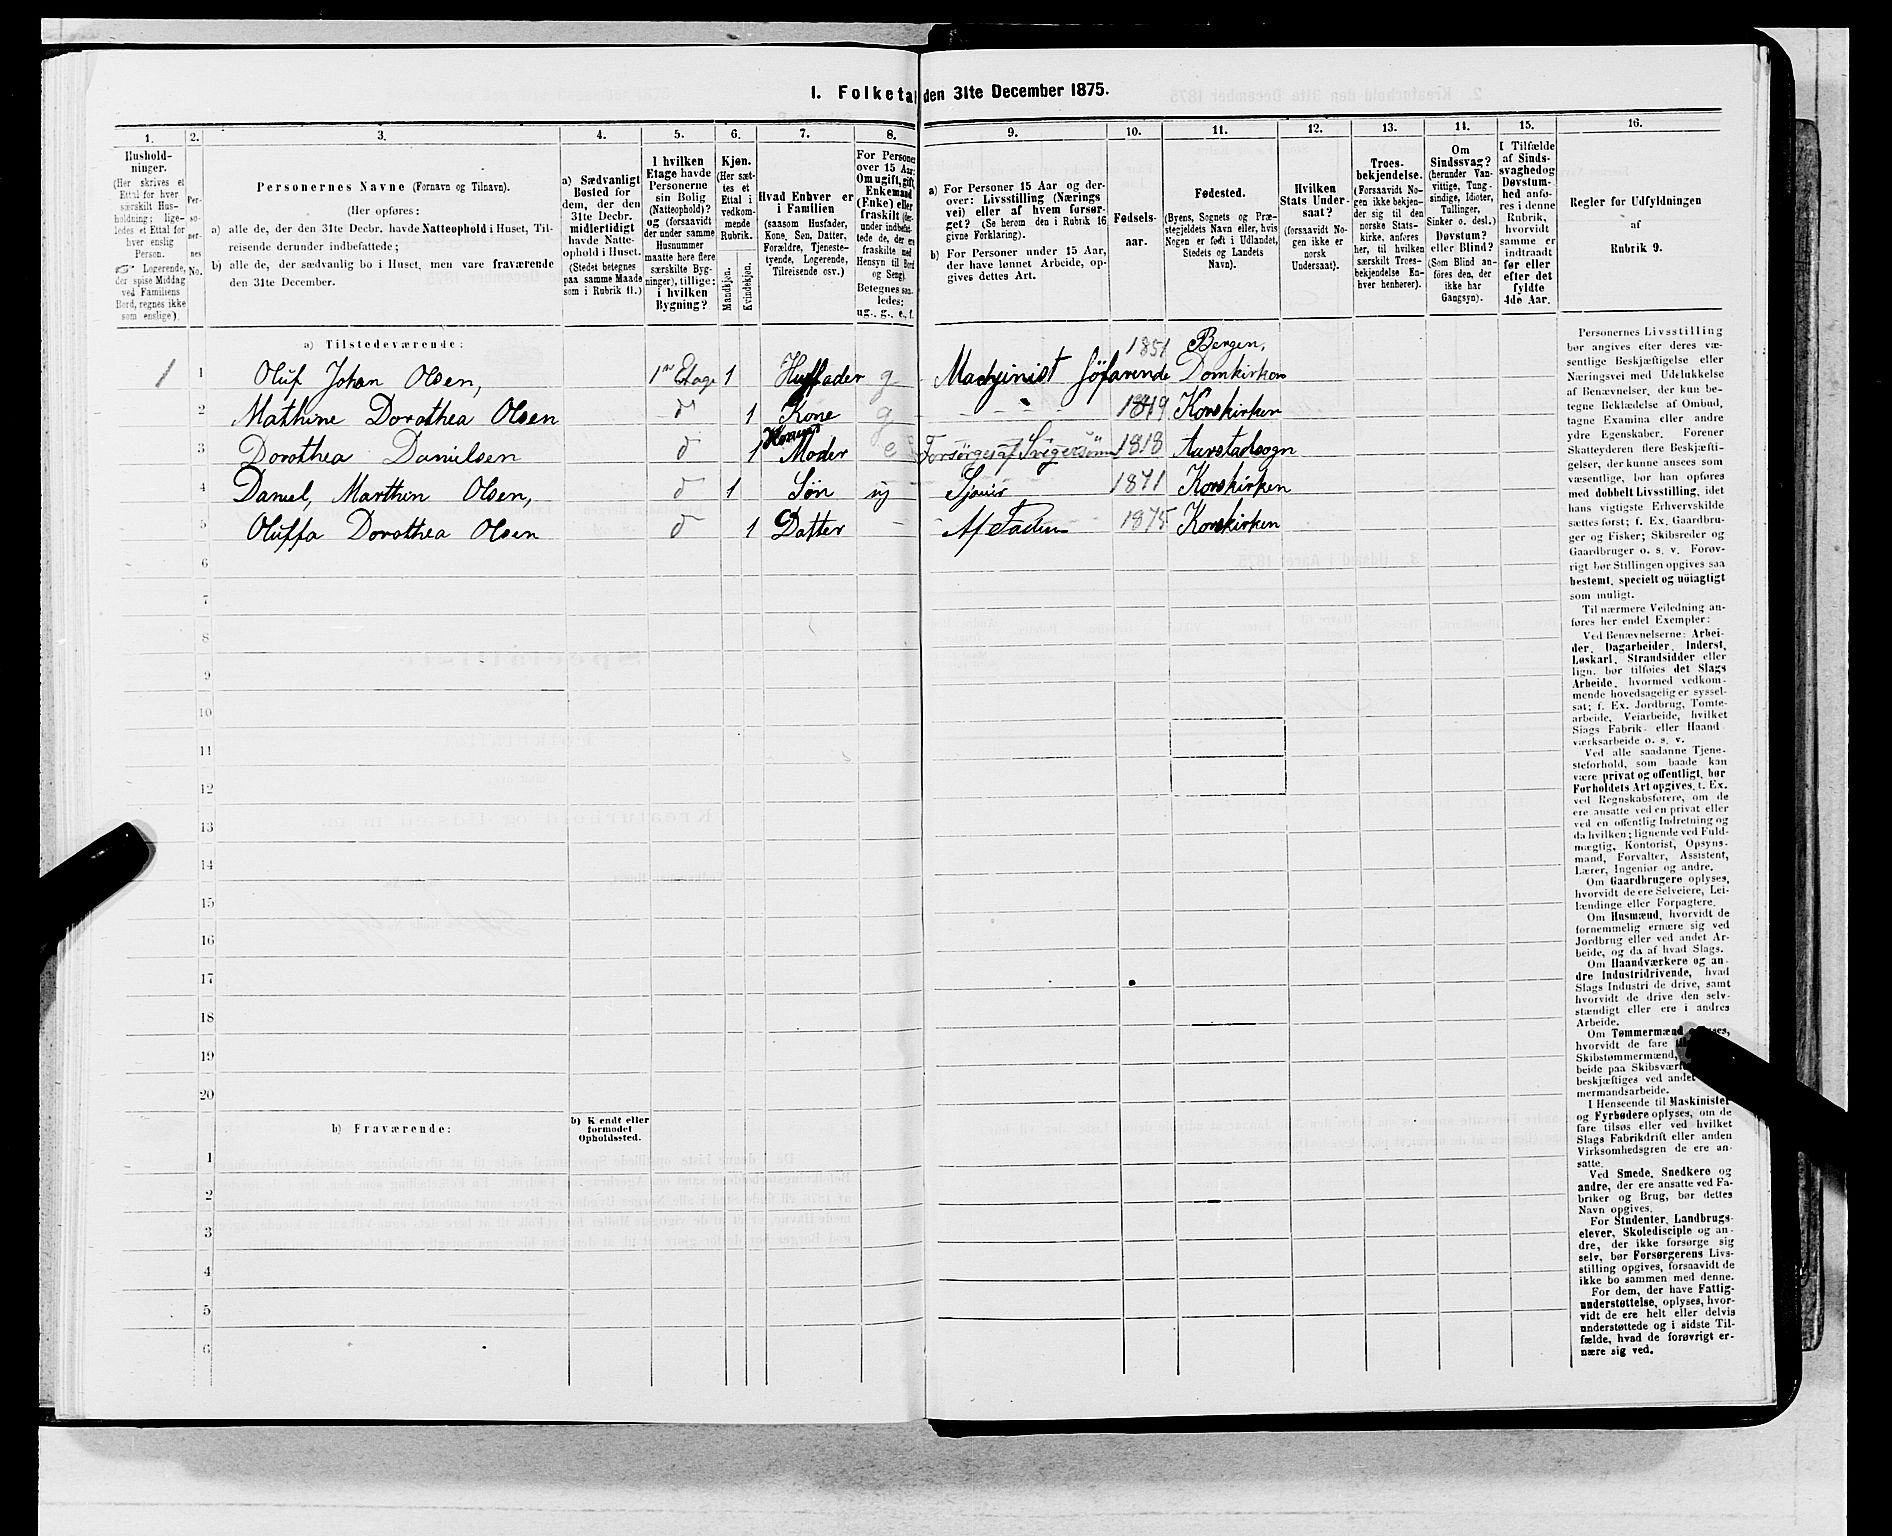 1. Folketal den 31te December 1875.
1. 2. 3. 4. 5. 6. 7. 8. 9. 10. 11. 12. 13. 14. 15. 16.
Husholdninger.
(Her skrives et
Ettal for hver
særskilt Husholdning;
ligeledes et Ettal for
hver enslig
Person.
☞ Logerende,
der spise Middag
ved Familiens
Bord, regnes ikke
som enslige).
Personernes
No.
Personernes Navne (Fornavn og Tilnavn).
(Her opføres:
a) alle de, der den 31te Decbr. havde Natteophold i Huset, Tilreisende derunder indbefattede;
b) alle de, der sædvanlig bo i Huset, men vare fraværende
den 31te December.
a) Sædvanligt
Bosted for
dem, der den
31te Decbr.
midlertidigt
havde Natteophold i Huset.
(Stedet betegnes
paa samme Maade
som i Rubrik 11.)
I hvilken
Etage havde
Personerne
sin Bolig
(Natteophold)?
og (forsaavidt
der under samme
Husnummer
maatte høre flere
særskilte Bygninger), tillige:
i hvilken
Bygning?
Kjøn.
(Her sættes et
Ettal i
vedkommende
Rubrik.
Mandkjøn.
Kvindekjøn.
Hvad Enhver er
i Familien
(saasom Husfader,
Kone, Søn, Datter,
Forældre, Tjenestetyende, Logerende,
Tilreisende osv.)
For Personer
over 15 Aar:
Om ugift, gift,
Enkemand
(Enke) eller
fraskilt
Hensyn til Bord
og Seng).
Betegnes saaledes:
ug., g., e., f.
a) For Personer 15 Aar og derover: Livsstilling (Nærings
vei) eller af hvem forsørget? (Se herom den i Rubrik 16
givne Forklaring).
b) For Personer under 15 Aar,
der have lønnet Arbeide, opgives dettes Art.
Fødselsaar.
Fødested.
(Byens, Sognets og Præstegjeldets Navn eller, hvis
Nogen er født i Udlandet,
Stedets og Landets
Navn).
Hvilken
Stats Undersaat?
(forsaavidt Nogen ikke er
norsk
Undersaat).
Troesbekjendelse.
(Forsaavidt Nogen ikke bekjender sig til den
norske Statskirke, anføres
her, til hvilken
særskilt Troesbekjendelse Enhver henhører).
Om
Sindssvag?
(herunder Vanvittige, Tungsindige, Idioter,
Tullinger,
Sinker o. desl.)
Døvstum?
eller Blind?
(Som Blind anføres den, der
ikke har
Gangsyn).
I Tilfælde
af Sindssvaghed og
Døvstumhed anføres i denne
Rubrik,
hvorvidt
samme er
indtraadt
før eller
efter det
fyldte
4de Aar.
Regler for Udfyldningen
af
Rubrik 9.
a) Tilstedeværende:
1 1 Oluf Johan Olsen, 1ste Etage 1 Husfader g Machinist Söfarende 1851 Bergen, Domkirken
2 Mathine Dorothea Olsen d 1 Kone g 1849 Korskirken
3 Dorothea Danielsen d 1 Konens Moder e Forsörges af Svigersönn 1818 Aarstadsogn
4 Daniel, Marthin Olsen, d 1 Søn ug 1871 Korskirken
5 Oluffa Dorothea Olsen d 1 Datter - 1875 Korskirken
6
7
8
9
10
11
12
13
14
15
16
17
18
19
20
b) Fraværende:
b) Kjendt eller
formodet
Opholdssted.
1
2
3
4
5
6
Personernes Livsstilling
bør angives efter deres væsentlige Beskjæftigelse eller
Næringsvei med Udelukkelse
af Benævnelser, der kun betegne Beklædelse af Ombud,
tagne Examina eller andre
ydre Egenskaber. Forener
Skatteyderen flere Beskjæftigelser, der kunne ansees som
væsentlige, bør han opføres
med dobbelt Livsstilling, idet
hans vigtigste Erhvervskilde
sættes først; f. Ex. Gaardbruger og Fisker; Skibsreder og
Gaardbruger o. s. v. Forøvrigt bør Stillingen opgives saa
bestemt, specielt og nöiagtigt
som muligt.
Til nærmere Veiledning anføres her endel Exempler:
Ved Benævnelserne: Arbeider, Dagarbeider, Inderst,
Løskarl, Strandsidder eller
lign. bør tilføies det Slags
Arbeide, hvormed vedkommende hovedsagelig er sysselsat; f. Ex. Jordbrug, Tomtearbeide, Veiarbeide, hvilket
Slags Fabrik- eller Haandværksarbeide o. s. v.
Ved alle saadanne Tjenesteforhold, som baade kan
være privat og offentligt, bør
Forholdets Art opgives, f. Ex.
ved Regnskabsførere, om de
ere ansatte ved en privat eller
ved en offentlig Indretning og
da hvilken; lignende ved Fuldmægtig, Kontorist, Opsynsmand, Forvalter, Assistent,
Lærer, Ingeniør og andre.
Om Gaardbrugere oplyses,
hvorvidt de ere Selveiere, Leilændinge eller Forpagtere.
Om Husmænd, hvorvidt de
fornemmelig ernære sig ved
Jordbrug eller ved andet Arbeide, og da af hvad Slags.
Om Haandværkere og andre Industridrivende, hvad
Slags Industri de drive, samt
hvorvidt de drive den selvstændigt eller ere i andres
Arbeide.
Om Tømmermænd oplyses,
hvorvidt de fare
Skibstømmermænd,
beide paa Skibsværf
beskjæftiges ved andet
mermandsarbeide.
I Henseende til Maskinister
og Fyrbødere oplyses, om de
fare tilsøs eller ved hvilket
Slags Fabrikdrift eller anden
Virksomhedsgren de ere ansatte.
Ved Smede, Snedkere og
andre, der ere ansatte ved Fabriker og Brug, bør dettes
Navn opgives.
For Studenter, Landbrugselever, Skoledisciple og andre, der ikke forsørge sig
selv, bør Forsørgerens Livsstilling opgives, forsaavidt de
ikke bo sammen med denne.
For dem, der have Fattigunderstøttelse, oplyses, hvorvidt de ere helt eller delvis
understøttede og i sidste Tilfælde, hvad de forøvrigt ernære sig ved.